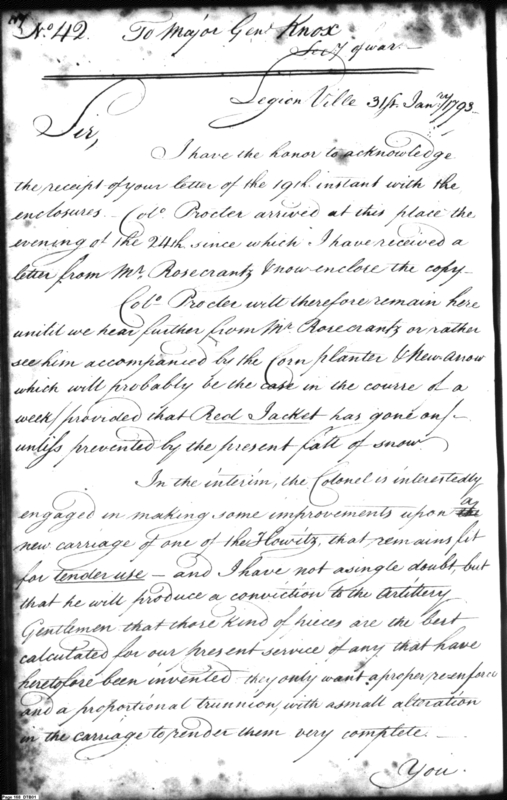 No. 42. To Major Genl. Knox
Secy of war.
Legion Ville 31st. Janry. 1793
Sir,
I have the honor to acknowledge
the receipt of your letter of the 19th. instant with the
enclosures. Colo. Procter arrived at this place the
evening of the 24th. since which I have received a
letter from Mr. Rosecrantz & now enclose the copy.
Colo. Procter will therefore remain here
untill we hear further from Mr. Rosecrantz or rather
see him accompanied by the Corn planter & New arrow
which will probably be the case in the course of a
week/ provided that Red Jacket has gone on/-
unless prevented by the present fall of snow.
In the interim, the Colonel is interestedly
engaged in making some improvements upon a
new carriage of one of the Howitz, that remains fit
for tender use - and I have not a single doubt, but
that he will produce a conviction to the Artillery
Gentlemen that those kind of pieces are the best
calculated for our present service of any that have
heretofore been invented - they only want a proper reenforce
and a proportional trunnion, with a small alteration
in the carriage to render them very complete. -
You.